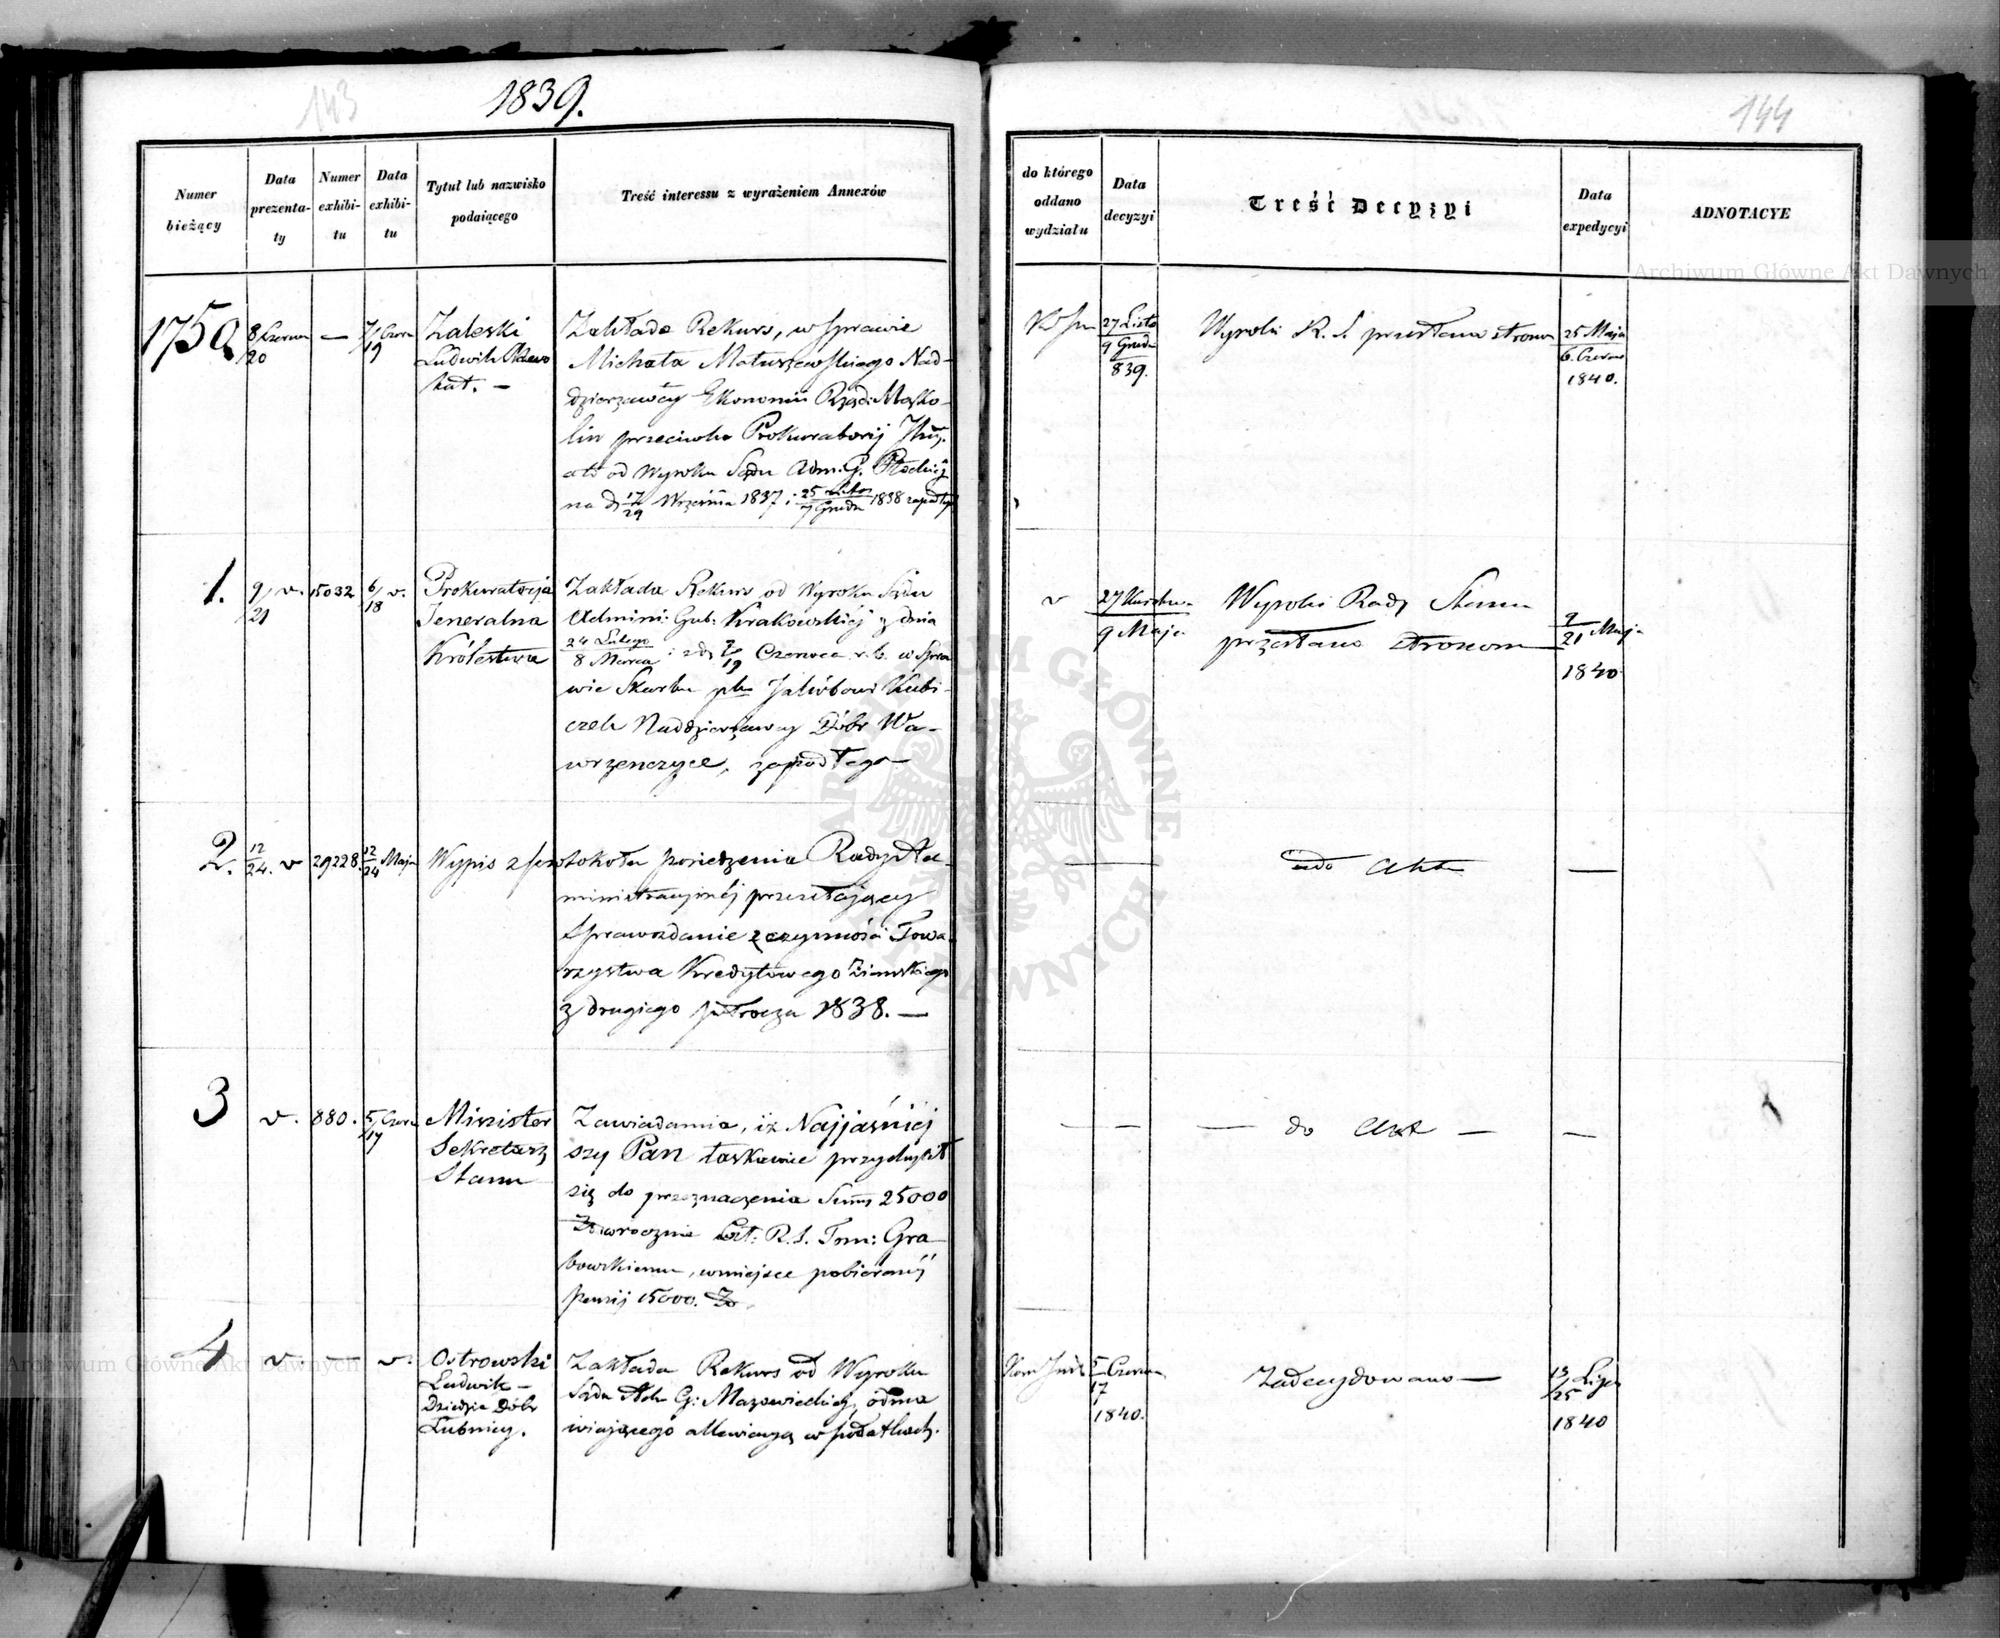 143
1839.
Numer bieżący
Data prezentaty
Numer exhibitu
Data exhibitu
Tytuł lub nazwisko podaiącego
Treść interessu z wyrażeniem Annexów
1750
8 Czerwca
20
—
7 Czer
19
Zaleski
Ludwik Adwo
kat. —
Zakłada Rekurs, w sprawie
Michała Matuszewskiego Nad-
dzierżawcy Ekonomii Rząd:
lin przeciwko Prokuratorij
od Wyroku Sądu Adm. G. Płockiej
na d 17/29 Września 1837 i 25 Listo/7 Grudn 1838 zapadłych
1.
9/21 v.
15032
6/18 v.
Prokuratorja
Jeneralna
Królestwa
Zakłada Rekurs od Wyroku Sądu
Admini: Gub: Krakowskiéj z dnia
24 Lutego/8 Marca i z d 7/19 Czerwca r. b. w spra
wie Skarbu pko Jakóbowi Kubi-
czek Naddzierżawcy Dóbr Wa-
wrzenczyce, zapadłego
2.
12/24. v
29228.
12/24 Maja
Wypis z protokołu posiedzenia Rady Ad-
ministracyjnéj przesyłający
Sprawozdanie z czynności Towa
rzystwa Kredytowego Ziemskiego
z drugiego półrocza 1838. —
3
v.
880.
5/17 Czerw
Minister
Sekretarz
Stanu
Zawiadamia, iż Najjaśniej
szy Pan łaskawie przychylił
się do przeznaczenia Summy 25000
Zł corocznie R. S. Tom: Gra-
bowskiemu, w miejsce pobieranéj
pensij 15000. Zł.
4
v.
—
v.
Ostrowski
Ludwik —
Dziedzic Dóbr
Łubnicy.
Zakłada Rekurs od Wyroku
Sądu Ad. G: Mazowieckiéj, odma
wiającego allewiacyą w podatkach.
144
do którego oddano wydziału
Data decyzyi
Treść Decyzyi
Data expedycyi
ADNOTACYE
27 Listo
9 Grudn
839.
Wyrok R. S. przesłano stronom
25 Maja
6 Czerwc
1840.
v
27 Kwietn
9 Maja
Wyrok Rady Stanu
przesłano stronom
9/21 Maja
1840
—
ado Akt
—
— — — do Akt — —
5 Czerwca
17
1840.
Zadecydowano —
13 Lipca
25
1840
Archiwum Główne Akt Dawnych
Archiwum Główne Akt Dawnych
ARCHIWUM GŁÓWNE AKT DAWNYCH